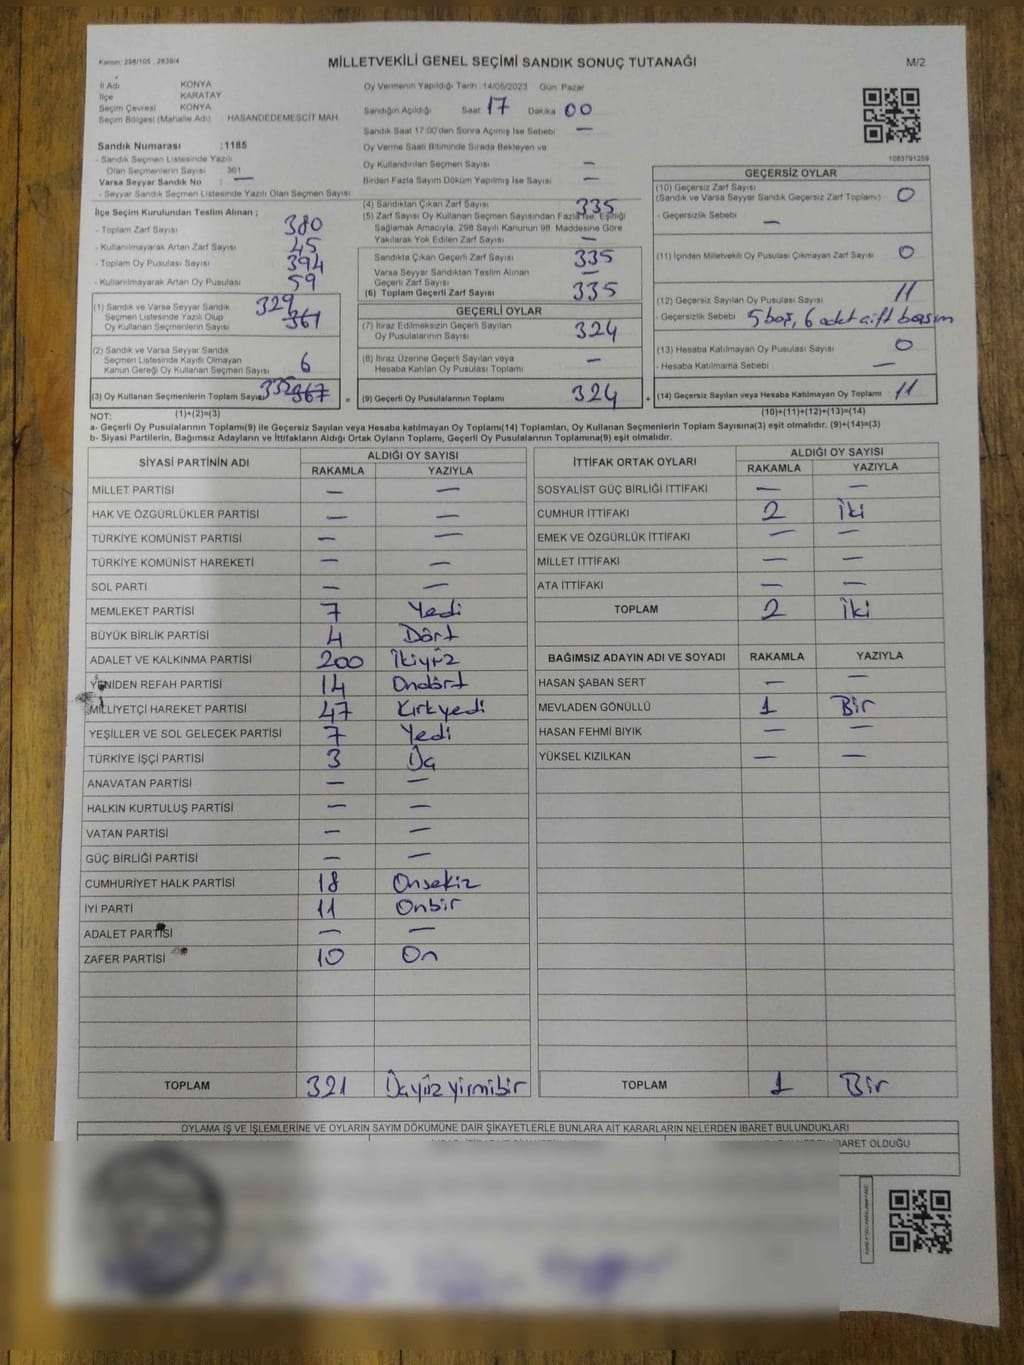 Kanun: 298/105 ; 2839/4
MİLLETVEKİLİ GENEL SEÇİMİ SANDIK SONUÇ TUTANAĞI
M/2
İl Adı KONYA
İlçe KARATAY
Seçim Çevresi KONYA
Seçim Bölgesi (Mahalle Adı) HASANDEDEMESCİT MAH.
Oy Vermenin Yapıldığı Tarih 14/05/2023 Gün Pazar
Sandığın Açıldığı Saat 17 Dakika 00
Sandık Saat 17:00'den Sonra Açılmış İse Sebebi —
Oy Verme Saati Bitiminde Sırada Bekleyen ve
Oy Kullandırılan Seçmen Sayısı —
Birden Fazla Sayım Döküm Yapılmış İse Sayısı —
1083791259
Sandık Numarası :1185
- Sandık Seçmen Listesinde Yazılı
Olan Seçmenlerin Sayısı 361
Varsa Seyyar Sandık No —
- Seyyar Sandık Seçmen Listesinde Yazılı Olan Seçmen Sayısı
İlçe Seçim Kurulundan Teslim Alınan ;
- Toplam Zarf Sayısı 380
- Kullanılmayarak Artan Zarf Sayısı 45
- Toplam Oy Pusulası Sayısı 394
- Kullanılmayarak Artan Oy Pusulası 59
(1) Sandık ve Varsa Seyyar Sandık
Seçmen Listesinde Yazılı Olup
Oy Kullanan Seçmenlerin Sayısı 329 361
(2) Sandık ve Varsa Seyyar Sandık
Seçmen Listesinde Kayıtlı Olmayan
Kanun Gereği Oy Kullanan Seçmen Sayısı 6
(3) Oy Kullanan Seçmenlerin Toplam Sayısı 335 367
(4) Sandıktan Çıkan Zarf Sayısı 335
(5) Zarf Sayısı Oy Kullanan Seçmen Sayısından Fazla İse, Eşitliği
Sağlamak Amacıyla, 298 Sayılı Kanunun 98. Maddesine Göre
Yakılarak Yok Edilen Zarf Sayısı —
Sandıkta Çıkan Geçerli Zarf Sayısı 335
Varsa Seyyar Sandıktan Teslim Alınan
Geçerli Zarf Sayısı —
(6) Toplam Geçerli Zarf Sayısı 335
GEÇERLİ OYLAR
(7) İtiraz Edilmeksizin Geçerli Sayılan
Oy Pusulasının Sayısı 324
(8) İtiraz Üzerine Geçerli Sayılan veya
Hesaba Katılan Oy Pusulası Toplamı —
= (9) Geçerli Oy Pusulalarının Toplamı 324
GEÇERSİZ OYLAR
(10) Geçersiz Zarf Sayısı
(Sandık ve Varsa Seyyar Sandık Geçersiz Zarf Toplamı) 0
- Geçersizlik Sebebi —
(11) İçinden Milletvekili Oy Pusulası Çıkmayan Zarf Sayısı 0
(12) Geçersiz Sayılan Oy Pusulası Sayısı 11
- Geçersizlik Sebebi 5 boş, 6 adet çift basım
(13) Hesaba Katılmayan Oy Pusulası Sayısı 0
- Hesaba Katılmama Sebebi —
+ (14) Geçersiz Sayılan veya Hesaba Katılmayan Oy Toplamı 11
NOT: (1)+(2)=(3) (10)+(11)+(12)+(13)=(14)
a- Geçerli Oy Pusulalarının Toplamı(9) ile Geçersiz Sayılan veya Hesaba katılmayan Oy Toplamı(14) Toplamları, Oy Kullanan Seçmenlerin Toplam Sayısına(3) eşit olmalıdır. (9)+(14)=(3)
b- Siyasi Partilerin, Bağımsız Adayların ve İttifakların Aldığı Ortak Oyların Toplamı, Geçerli Oy Pusulalarının Toplamına(9) eşit olmalıdır.
SİYASİ PARTİNİN ADI ALDIĞI OY SAYISI
RAKAMLA YAZIYLA
MİLLET PARTİSİ — —
HAK VE ÖZGÜRLÜKLER PARTİSİ — —
TÜRKİYE KOMÜNİST PARTİSİ — —
TÜRKİYE KOMÜNİST HAREKETİ — —
SOL PARTİ — —
MEMLEKET PARTİSİ 7 Yedi
BÜYÜK BİRLİK PARTİSİ 4 Dört
ADALET VE KALKINMA PARTİSİ 200 İkiyüz
YENİDEN REFAH PARTİSİ 14 Ondört
MİLLİYETÇİ HAREKET PARTİSİ 47 Kırkyedi
YEŞİLLER VE SOL GELECEK PARTİSİ 7 Yedi
TÜRKİYE İŞÇİ PARTİSİ 3 Üç
ANAVATAN PARTİSİ — —
HALKIN KURTULUŞ PARTİSİ — —
VATAN PARTİSİ — —
GÜÇ BİRLİĞİ PARTİSİ — —
CUMHURİYET HALK PARTİSİ 18 Onsekiz
İYİ PARTİ 11 Onbir
ADALET PARTİSİ — —
ZAFER PARTİSİ 10 On
TOPLAM 321 Üçyüzyirmibir
İTTİFAK ORTAK OYLARI ALDIĞI OY SAYISI
RAKAMLA YAZIYLA
SOSYALİST GÜÇ BİRLİĞİ İTTİFAKI — —
CUMHUR İTTİFAKI 2 İki
EMEK VE ÖZGÜRLÜK İTTİFAKI — —
MİLLET İTTİFAKI — —
ATA İTTİFAKI — —
TOPLAM 2 İki
BAĞIMSIZ ADAYIN ADI VE SOYADI RAKAMLA YAZIYLA
HASAN ŞABAN SERT — —
MEVLADEN GÖNÜLLÜ 1 Bir
HASAN FEHMİ BIYIK — —
YÜKSEL KIZILKAN — —
TOPLAM 1 Bir
OYLAMA İŞ VE İŞLEMLERİNE VE OYLARIN SAYIM DÖKÜMÜNE DAİR ŞİKAYETLERLE BUNLARA AİT KARARLARIN NELERDEN İBARET BULUNDUKLARI
İBARET OLDUĞU